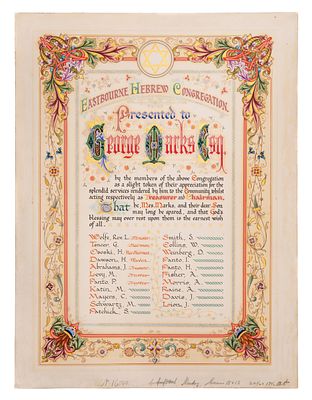 Eastbourne Hebrew Congregation.
Presented to
George Marks Esq.
by the members of the above Congregation
as a slight token of their appreciation for the
splendid services rendered by him to the Community whilst
acting respectively as Treasurer & Chairman,
That he, Mrs. Marks, and their dear Son
may long be spared, and that God's
blessing may ever rest upon them is the earnest wish
of all.
Wolfe, Rev. L. Minister
Smith, S.
Collins, W.
Dawson, H.
Weinberg, D.
Fanto, I.
Abrahams, J.
Fanto, H.
Levy, M.
Fisher, A.
Fanto, P.
Morris, A.
Katin, M.
Raine, A.
Mayers, C.
Davis, J.
Schwartz, M.
Lion, J.
Patchick, S.